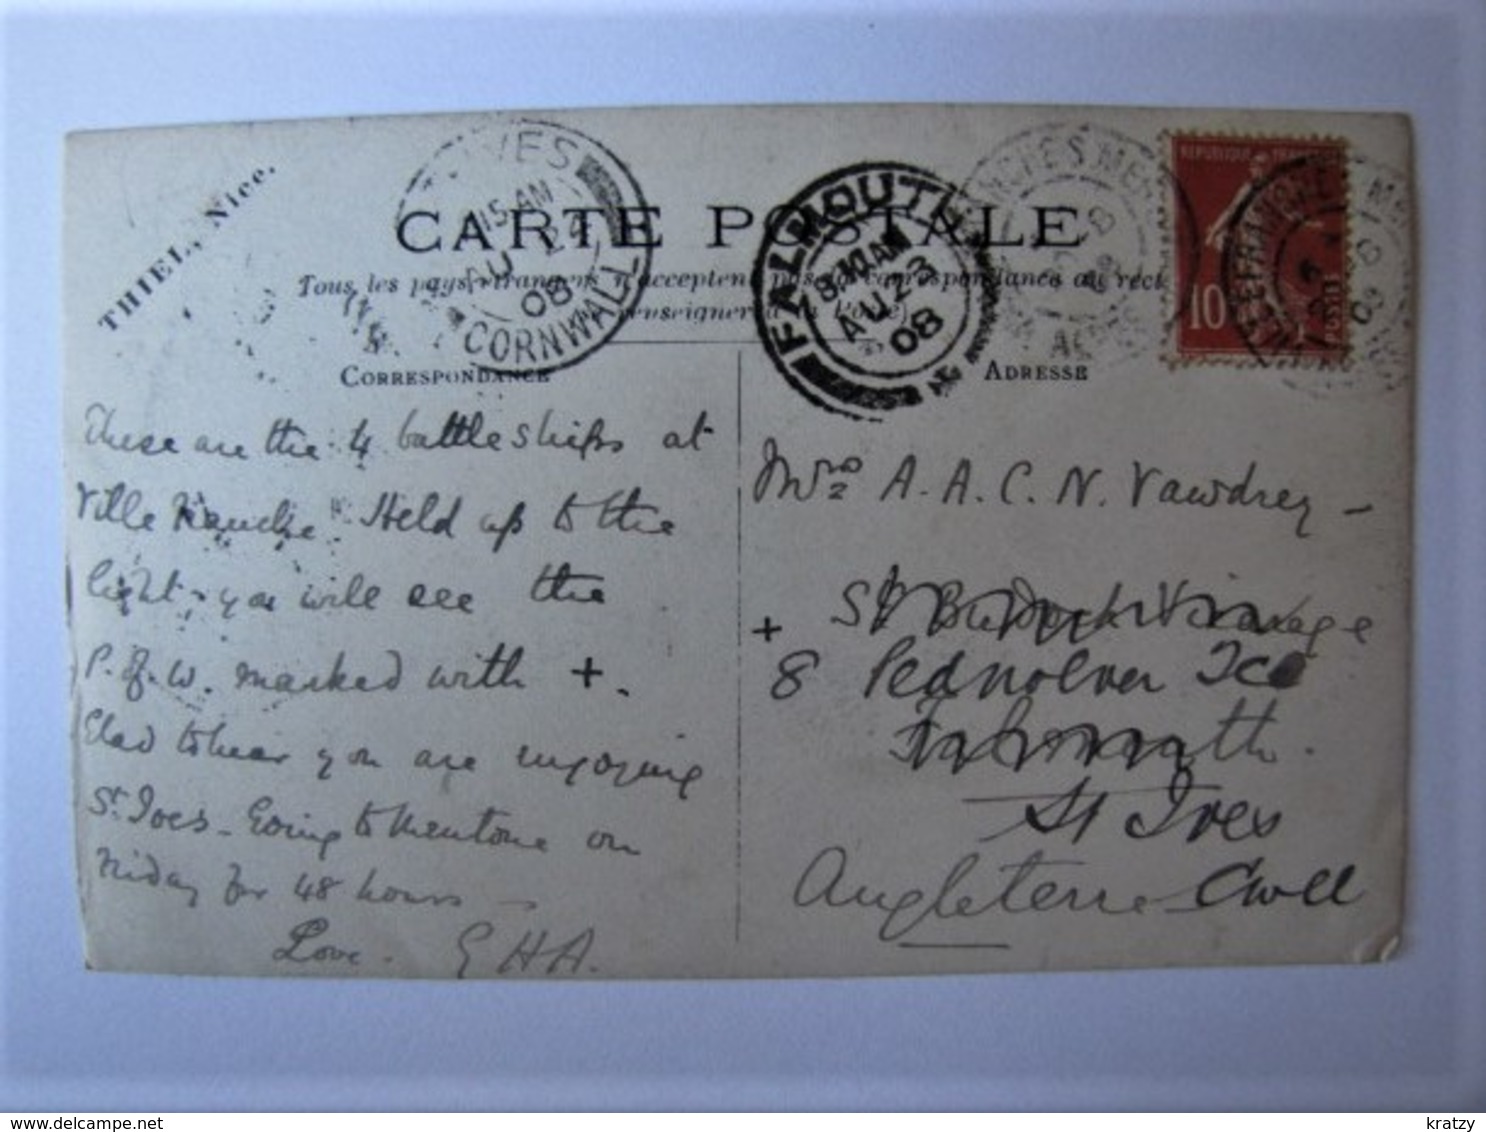 THIEL, Nice.
CARTE POSTALE
Tous les pays étrangers n'acceptent pas la correspondance au recto
CORRESPONDANCE
ADRESSE
IVES
15 AM
AU 24
08
CORNWALL
FALMOUTH
8.10 AM
AU 23
08
REPUBLIQUE
10
POSTES
These are the 4 battleships at
Ville Franche. Held up to the
light, you will see the
P. of W. marked with +.
Glad to hear you are enjoying
St. Ives - Going to Mentone on
Friday for 48 hours -
Love. G H A.
Mrs A. A. C. N. Vawdrey -
+ St Budock Vicarage
8 Pednolver Tce
Falmouth.
St Ives
Angleterre Cwll
kratzy